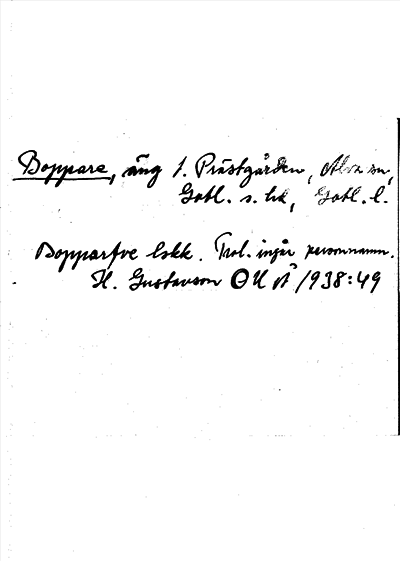 Boppare, äng 1. Prästgården, Alva sn,
Gotl. s. hd, Gotl. l.
Bopparfve lskk. Trol. ingår personnamn.
H. Gustavson OUÅ 1938:49